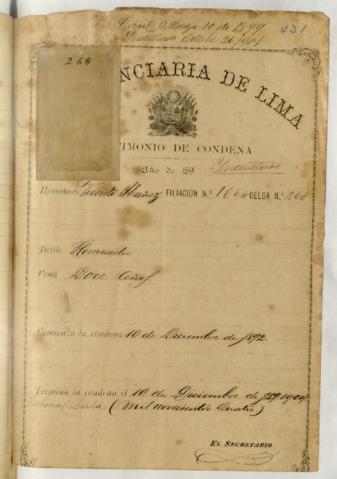 Marzo 10 de 1899
Octubre 26/1901
431
268
NCIARIA DE LIMA
TIMONIO DE CONDENA
Año de 189
Rematado Vicente Ibañez FILIACIÓN N.º 1664 CELDA N.º 268
Delito Homicidio
Pena Doce años
Comienza la condena 10 de Diciembre de 1892
Termina la condena el 10 de Diciembre de 1904
(Mil novecientos cuatro)
EL SECRETARIO